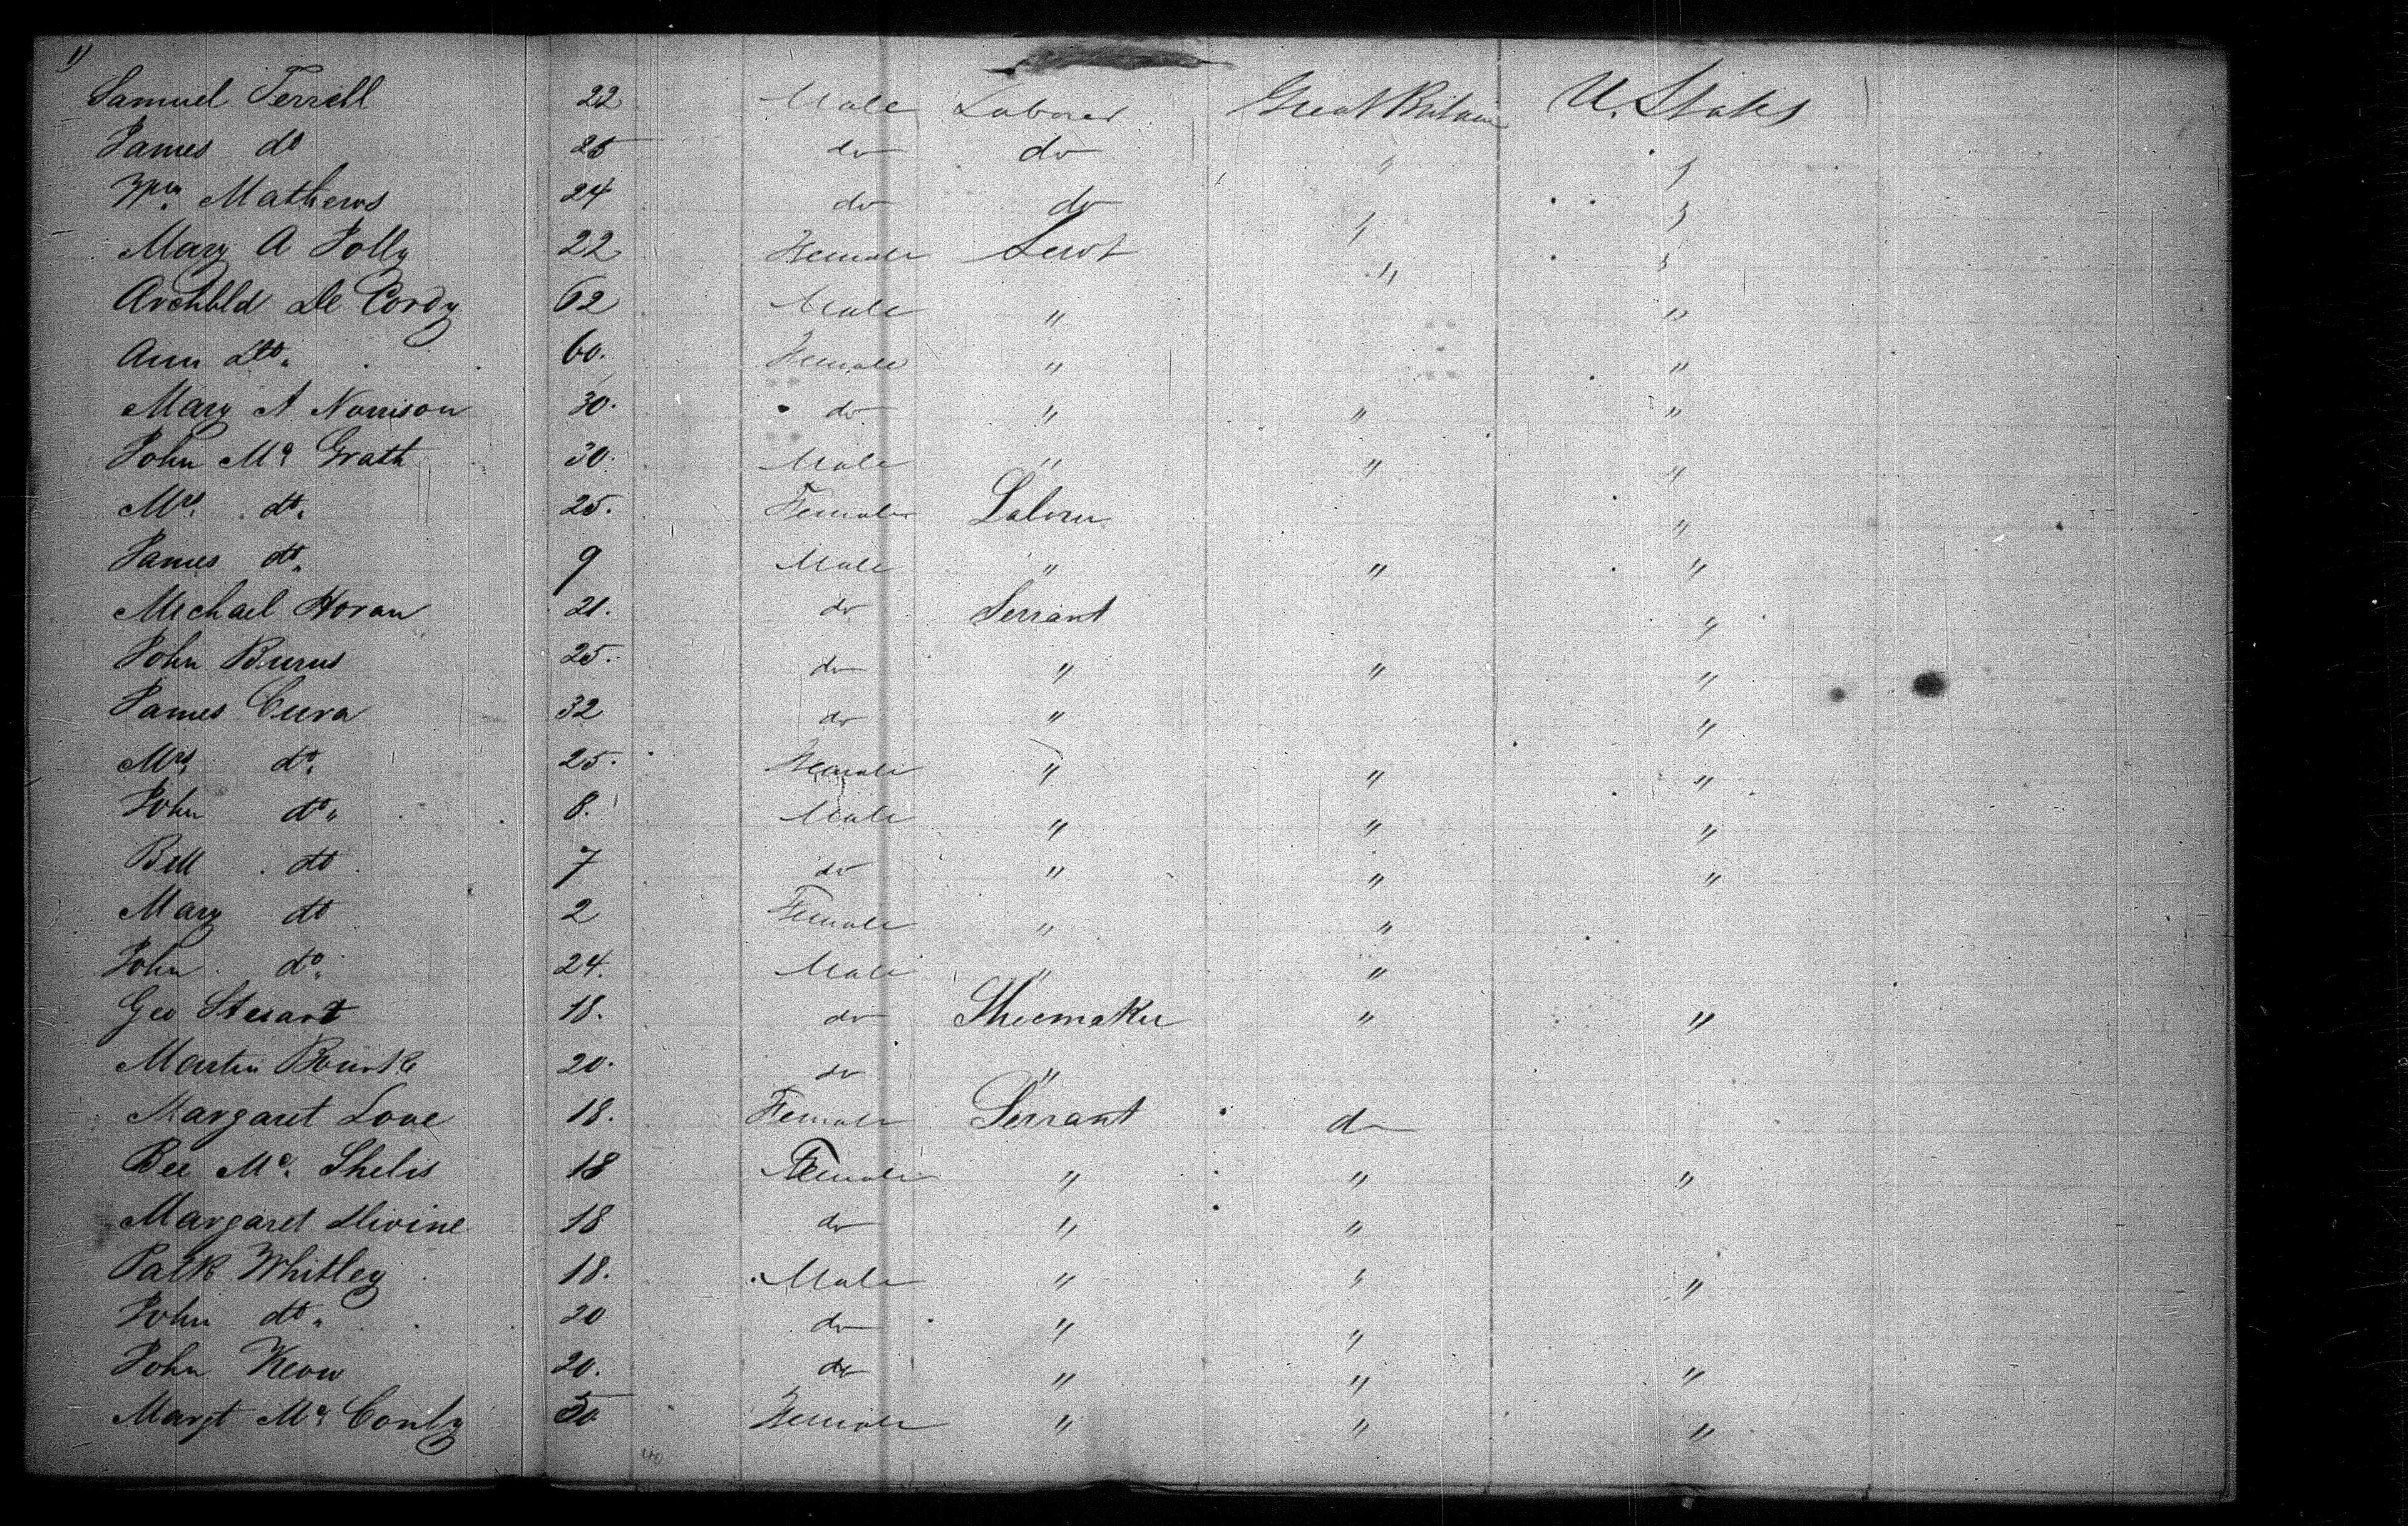 Samuel Terrell 22 Male Laborer Great Britain U. States
James do 25 do do " "
Wm. Mathews 24 do do " "
Mary A Jolly 22 Female Servt " "
Archbld De Cordy 62 Male " "
Ann Do. 60. Female " "
Mary A Norrison 30. do " " "
John Mc Grath 30. Male " " "
Mrs. do. 25. Female Laborer "
James do. 9 Male " " "
Michael Horan 21. do Servant "
John Burns 25. do " " "
James Curra 32 do " "
Mrs. do. 25. Female " " "
John do. 8. Male " " "
Bell do 7 do " " "
Mary do 2 Female " "
John do. 24. Male " "
Geo Stewart 18. do Shoemaker " "
Martin Bourke 20. do "
Margaret Love 18. Female Servant do
Bee Mc. Shelis 18 Female " " "
Margaret Divine 18 do " "
Patk Whitley 18. Male " " "
John do. 20 do " "
John Keow 20. do " " "
Margt Mc Conly 50 Female " " "